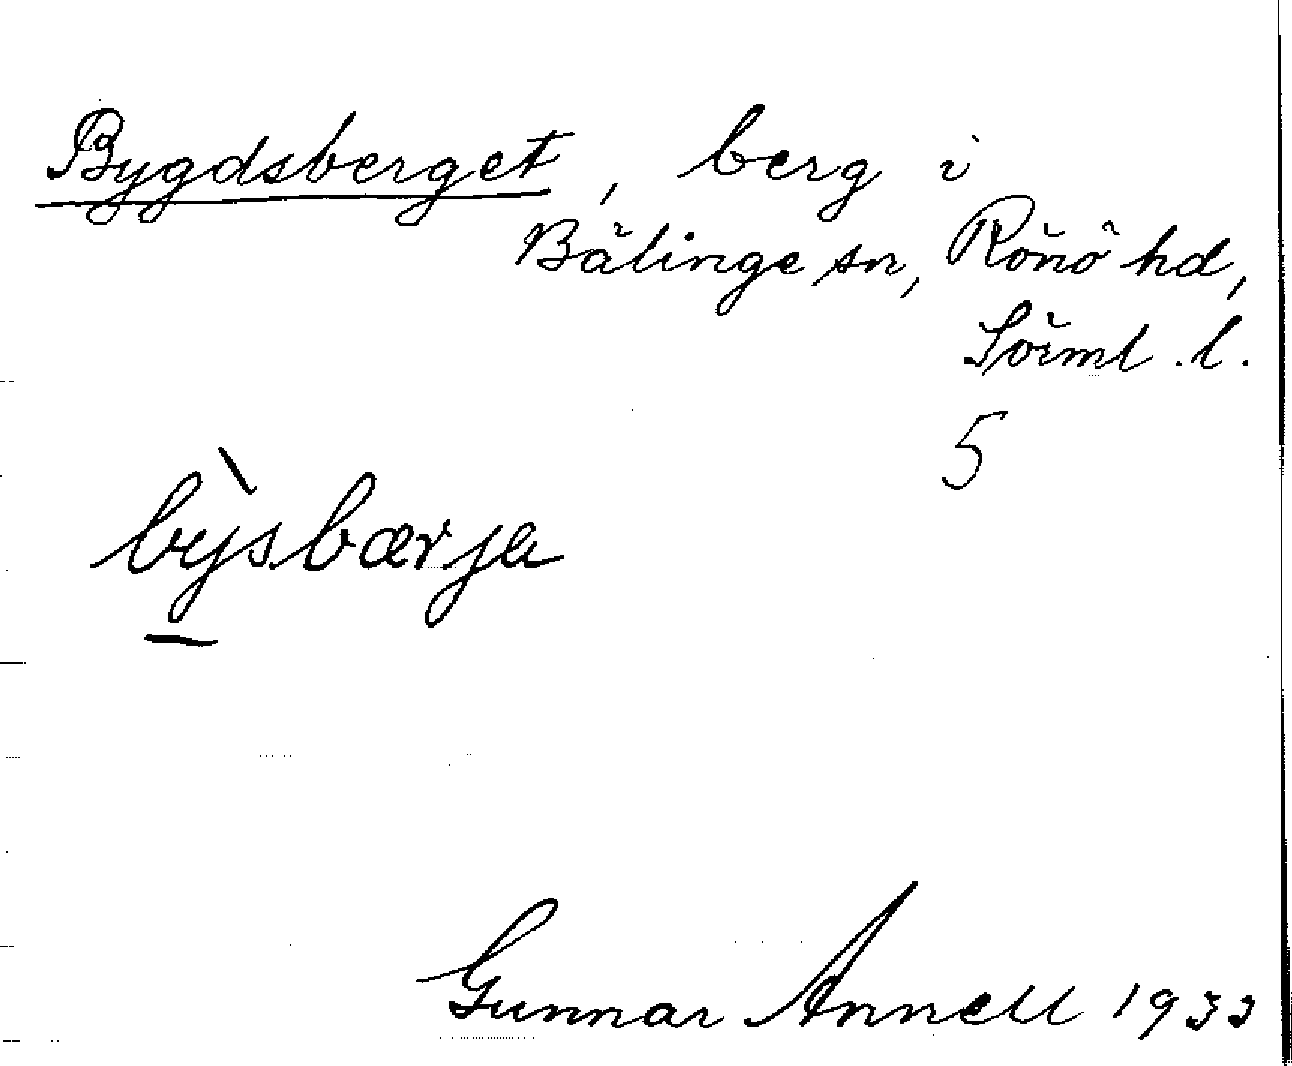 Bygdsberget, berg i
Bälinge sn, Rönö hd,
Sörml. l.
5
bỳsbærja
Gunnar Annell 1933